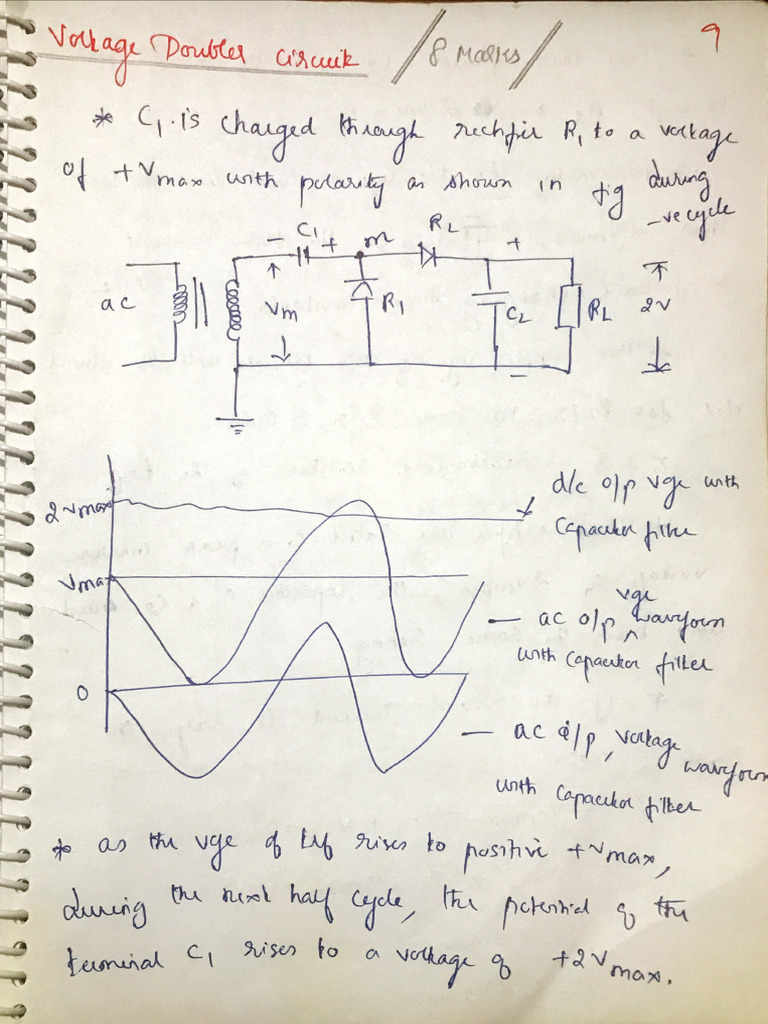 Voltage Doubler Circuit / 8 Marks / 9
* C1 is charged through rectifier R1 to a voltage
of +Vmax with polarity as shown in fig during
-ve cycle
- C1 + m R2 +
ac Vm R1 C2 RL 2V
-
2Vmax
Vmax
0
d/c o/p vge with
Capacitor filter
vge
— ac o/p ^ waveform
with capacitor filter
— ac i/p, voltage
waveform
with capacitor filter
* as the vge of t/f rises to positive +Vmax,
during the next half cycle, the potential of the
terminal C1 rises to a voltage of +2Vmax.